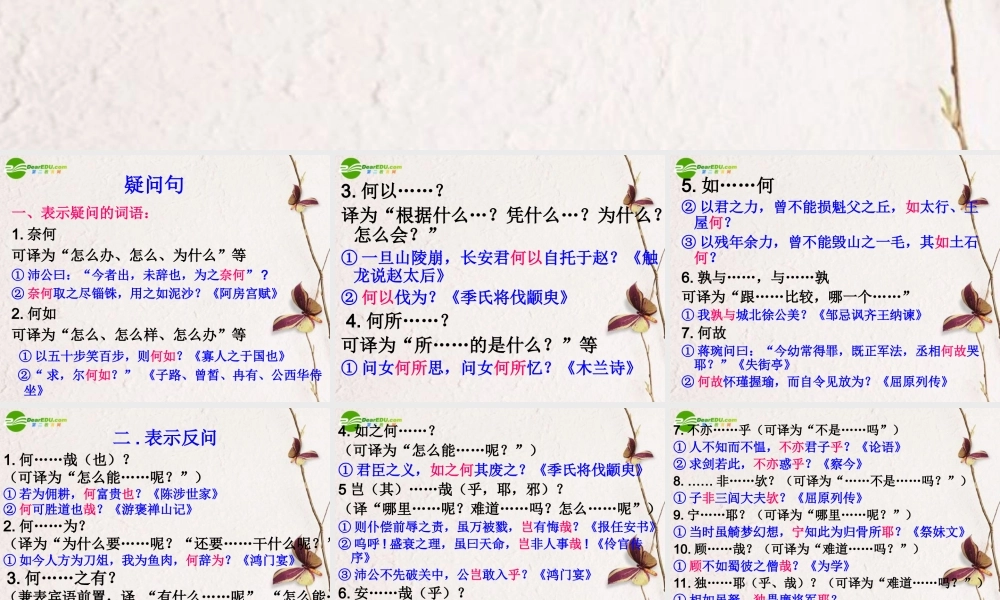 DearEDU.com
疑问句
一、表示疑问的词语：
1. 奈何
可译为“怎么办、怎么、为什么”等
① 沛公曰：“今者出，未辞也，为之奈何”？
② 奈何取之尽锱铢，用之如泥沙？《阿房宫赋》
2. 何如
可译为“怎么、怎么样、怎么办”等
① 以五十步笑百步，则何如？《寡人之于国也》
②“ 求，尔何如？” 《子路、曾皙、冉有、公西华侍
坐》
DearEDU.com
3. 何以……？
译为“根据什么…？凭什么…？为什么？
怎么会？”
① 一旦山陵崩，长安君何以自托于赵？《触
龙说赵太后》
② 何以伐为？《季氏将伐颛臾》
4. 何所……？
可译为“所……的是什么？”等
① 问女何所思，问女何所忆？《木兰诗》
DearEDU.com
5. 如……何
② 以君之力，曾不能损魁父之丘，如太行、王
屋何？
③ 以残年余力，曾不能毁山之一毛，其如土石
何？
6. 孰与……，与……孰
可译为“跟……比较，哪一个……”
① 我孰与城北徐公美？《邹忌讽齐王纳谏》
7. 何故
① 蒋琬问曰：“今幼常得罪，既正军法，丞相何故哭
耶？”《失街亭》
② 何故怀瑾握瑜，而自令见放为？《屈原列传》
DearEDU.com
二 . 表示反问
1. 何……哉（也）？
（可译为“怎么能……呢？”）
① 若为佣耕，何富贵也？《陈涉世家》
② 何可胜道也哉？《游褒禅山记》
2. 何……为？
（译为“为什么要……呢？“还要……干什么呢？”
① 如今人方为刀俎，我为鱼肉，何辞为？《鸿门宴》
3. 何……之有？
（兼表宾语前置，译 “有什么……呢” “怎么能
DearEDU.com
4. 如之何……？
（可译为“怎么能……呢？”）
① 君臣之义，如之何其废之？《季氏将伐颛臾》
5 岂（其）……哉（乎，耶，邪）？
（译“哪里……呢？难道……吗？怎么……呢”）
① 则仆偿前辱之责，虽万被戮，岂有悔哉？《报任安书》
② 呜呼 ! 盛衰之理，虽曰天命，岂非人事哉 !《伶官传
序》
③ 沛公不先破关中，公岂敢入乎？《鸿门宴》
6. 安……哉（乎）？
DearEDU.com
7. 不亦……乎（可译为“不是……吗”）
① 人不知而不愠，不亦君子乎？《论语》
② 求剑若此，不亦惑乎？《察今》
8. …… 非……欤？（可译为“……不是……吗？”）
① 子非三闾大夫欤？《屈原列传》
9. 宁……耶？（可译为“哪里……呢？”）
① 当时虽觭梦幻想，宁知此为归骨所耶？《祭妹文》
10. 顾……哉？（可译为“难道……吗？”）
① 顾不如蜀彼之僧哉？《为学》
11. 独……耶（乎、哉）？（可译为“难道……吗？”）
① 相如虽驽，独畏廉将军耶？